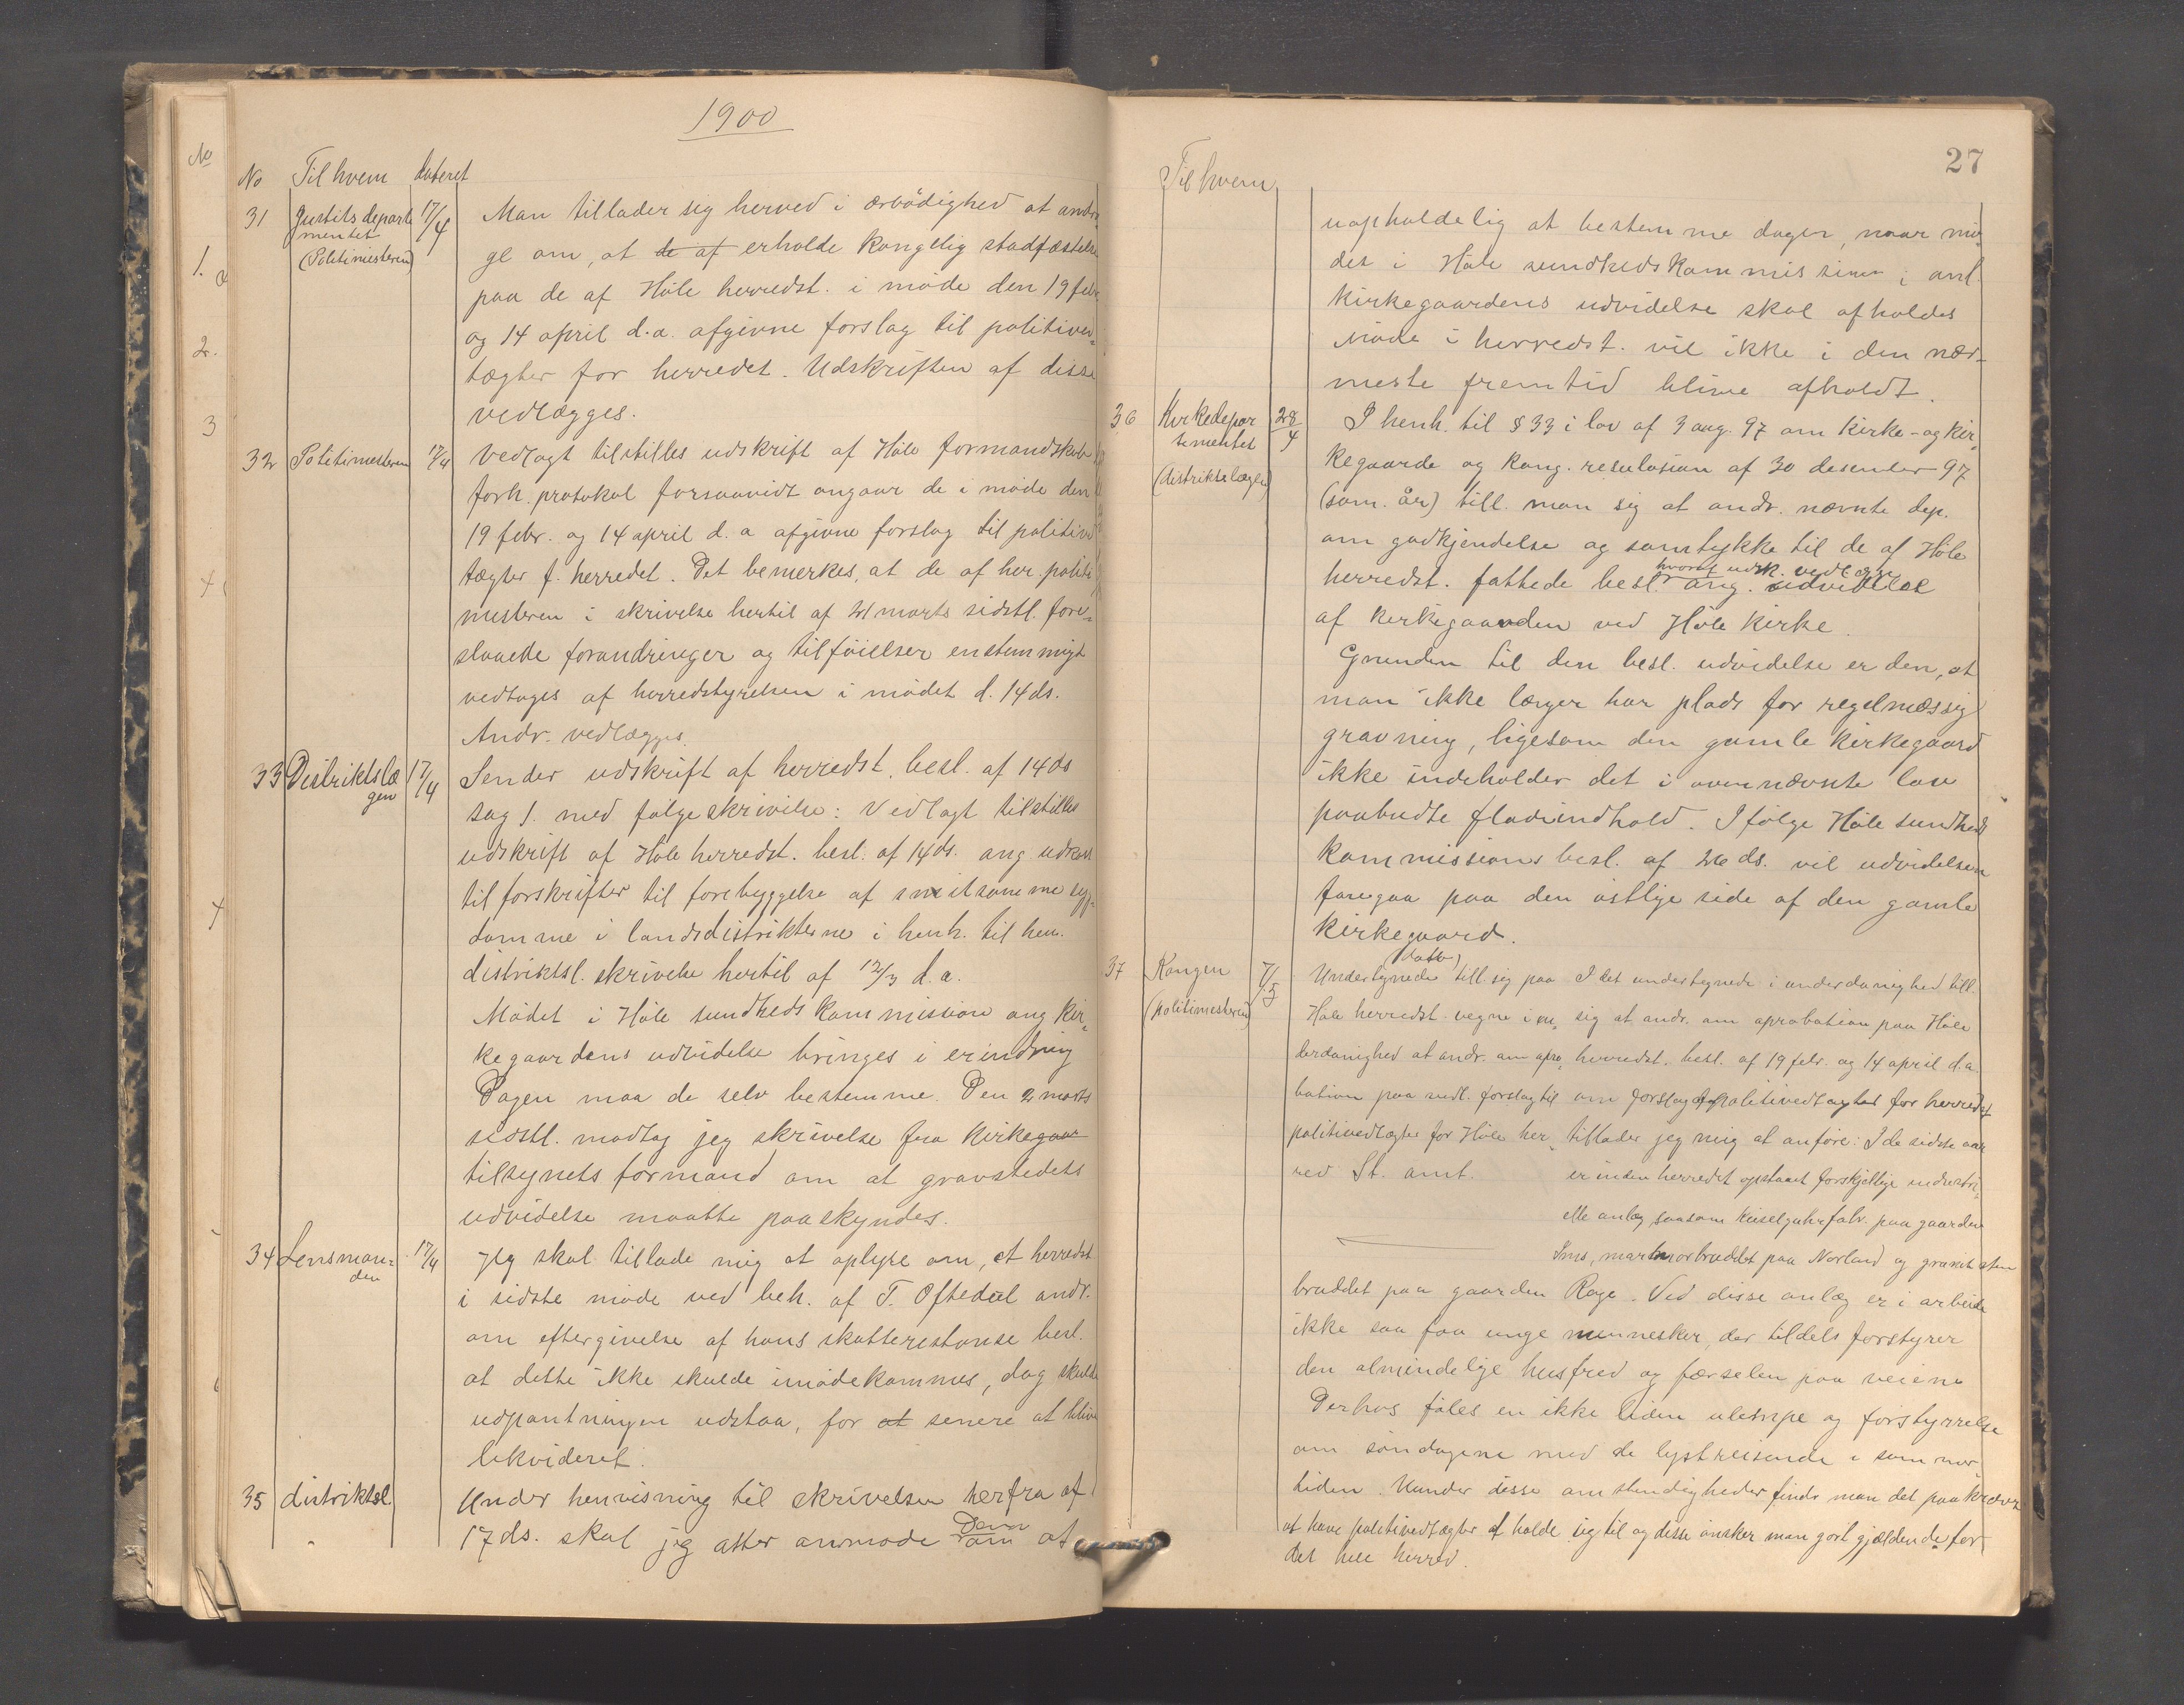 1900
No Til hvem dateret
31 Justitsdeparte 17/4 Man tillader sig herved i ærbödighed at andra-
mentet
(Politimesteren) ge om, at de af erholde kongelig stadfæstelse
paa de af Höle herredst. i möde den 19 febr.
og 14 april d.a. afgivne forslag til politived-
tægter for herredet. Udskriften af disse
vedlægges.
32 Politimesteren 17/4 Vedlagt tilstilles udskrift af Höle formandskabs
forh. protokol forsaavidt angaar de i möde den
19 febr. og 14 april d. a afgivne forslag til politived
tægter f. herredet. Det bemerkes, at de af her. politi
mesteren i skrivelse hertil af 21 marts sidstl. fore-
slaaede forandringer og tilföielser enstemmigt
vedtoges af herredstyrelsen i mödet d. 14 ds.
Andr. vedlægges.
33 Distriktslæ 17/4 Sender udskrift af herredst. besl. af 14 ds
gen
sag 1. med fölgeskrivelse: Vedlagt tilstilles
udskrift af Höle herredst. besl. af 14 ds. ang. udkast
til forskrifter til forebyggelse af smitsomme syg-
domme i landsdistrikterne i henh. til hem.
distriktsl. skrivelse hertil af 12/3 d.a.
Mödet i Höle sundhedskommission ang kir-
kegaardens udvidelse bringes i erindring
Dagen maa de selv bestemme. Den 2 marts
sidstl. modtog jeg skrivelse fra kirkegaar
tilsynets formand om at gravstedets
udvidelse maatte paaskyndes.
34 Lensman- 17/4 Jeg skal tillade mig at oplyse om, at herredst.
den
i sidste möde ved beh. af T. Oftedal andr.
om eftergivelse af hans skatterestanse besl.
at dette ikke skulde imödekommes, dog skulde
udpantningen udstaa, for at senere at blive
likvideret.
35 distriktsl. Under henvisning til skrivelsen herfra af
17 ds. skal jeg atter anmode om at
Dem
27
Til hvem
uopholdelig at bestemme dagen, naar mö-
det i Höle sundhedskommission i anl.
kirkegaardens udvidelse skal afholdes
Möde i herredst. vil ikke i den nær-
meste fremtid blive afholdt.
36 Kirkedepar 28/4 I henh. til § 33 i lov af 3 aug. 97 om kirke- og kir-
tementet
(distriktslægen) kegaarde og kong. resulosion af 30 desember 97
(som. år) till. man sig at andr. nævnte dep.
om godkjendelse og samtykke til de af Höle
hvoraf udsk. vedlægges
herredst. fattede besl. ang. udvidelse
af kirkegaarden ved Höle kirke.
Grunden til den besl. udvidelse er den, at
man ikke længer har plads for regelmæssig
gravning, ligesom den gamle kirkegaard
ikke indeholder det i ovennævnte lov
paabudte fladeindhold. Ifölge Höle sundheds
kommissions besl. af 26 ds. vil udvidelsen
foregaa paa den östlige side af den gamle
kirkegaard.
37 Kongen 7/5 Undertegnede till. sig paa I det undertegnede i underdanighed till.
(politimesteren) Höle herredst. vegne i un- sig at andr. om aprobation paa Höle
derdanighed at andr. om apro- herredst. besl. af 19 febr. og 14 april d.a.
bation paa vedl. forslag til om forslag til politivedtægter for herredet
politivedtægter for Höle her- tillader jeg mig at anföre: I de sidste aar
red St. amt. er inden herredet opstaaet forskjellige industri-
elle anlæg saasom kiselguhrfabr. paa gaarden
Ims, marmorbruddet paa Norland og granitsten
bruddet paa gaarden Rage. Ved disse anlæg er i arbeide
ikke saa faa unge mennesker, der tildels forstyrer
den almindelige husfred og færselen paa veiene
Derhos föles en ikke liden ulempe og forstyrrelse
om söndagene med de lystreisende i sommer-
tiden. Under disse omstendigheder finds man det paakrævet
at have politivedtægter at holde sig til og disse önsker man gort gjældende for
det hele herred.